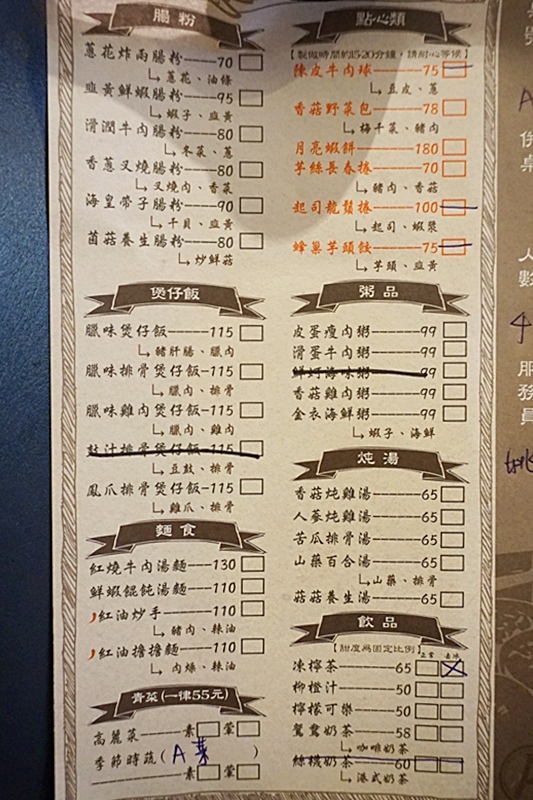 腸粉
蔥花炸兩腸粉 70
蔥花、油條
韭黃鮮蝦腸粉 95
蝦子、韭黃
滑潤牛肉腸粉 80
冬菜、蔥
香蔥叉燒腸粉 80
叉燒肉、香菜
海皇帶子腸粉 90
干貝、韭黃
菌菇養生腸粉 80
炒鮮菇
煲仔飯
臘味煲仔飯 115
豬肝腸、臘肉
臘味排骨煲仔飯 115
臘肉、排骨
臘味雞肉煲仔飯 115
臘肉、雞肉
豉汁排骨煲仔飯 115
豆豉、排骨
鳳爪排骨煲仔飯 115
雞爪、排骨
麵食
紅燒牛肉湯麵 130
鮮蝦餛飩湯麵 110
紅油炒手 110
豬肉、辣油
紅油擔擔麵 110
肉燥、辣油
青菜(一律55元)
高麗菜 素 葷
季節時蔬(A菜)
素 葷
點心類
【製做時間約15-20分鐘，請耐心等候】
陳皮牛肉球 75
豆皮、蔥
香菇野菜包 78
梅干菜、豬肉
月亮蝦餅 180
芋絲長春捲 70
豬肉、香菇
起司龍鬚捲 100
起司、蝦漿
蜂巢芋頭餃 75
芋頭、韭黃
粥品
皮蛋瘦肉粥 99
滑蛋牛肉粥 99
鮮蚵海味粥 99
香菇雞肉粥 99
金衣海鮮粥 99
蝦子、海鮮
炖湯
香菇炖雞湯 65
人蔘炖雞湯 65
苦瓜排骨湯 65
山藥百合湯 65
山藥、排骨
菇菇養生湯 65
飲品
【甜度為固定比例】 正常 去冰
凍檸茶 65
柳橙汁 50
檸檬可樂 50
鴛鴦奶茶 58
咖啡奶茶
絲襪奶茶 60
港式奶茶
A
桌
人
數
4
服
務
員